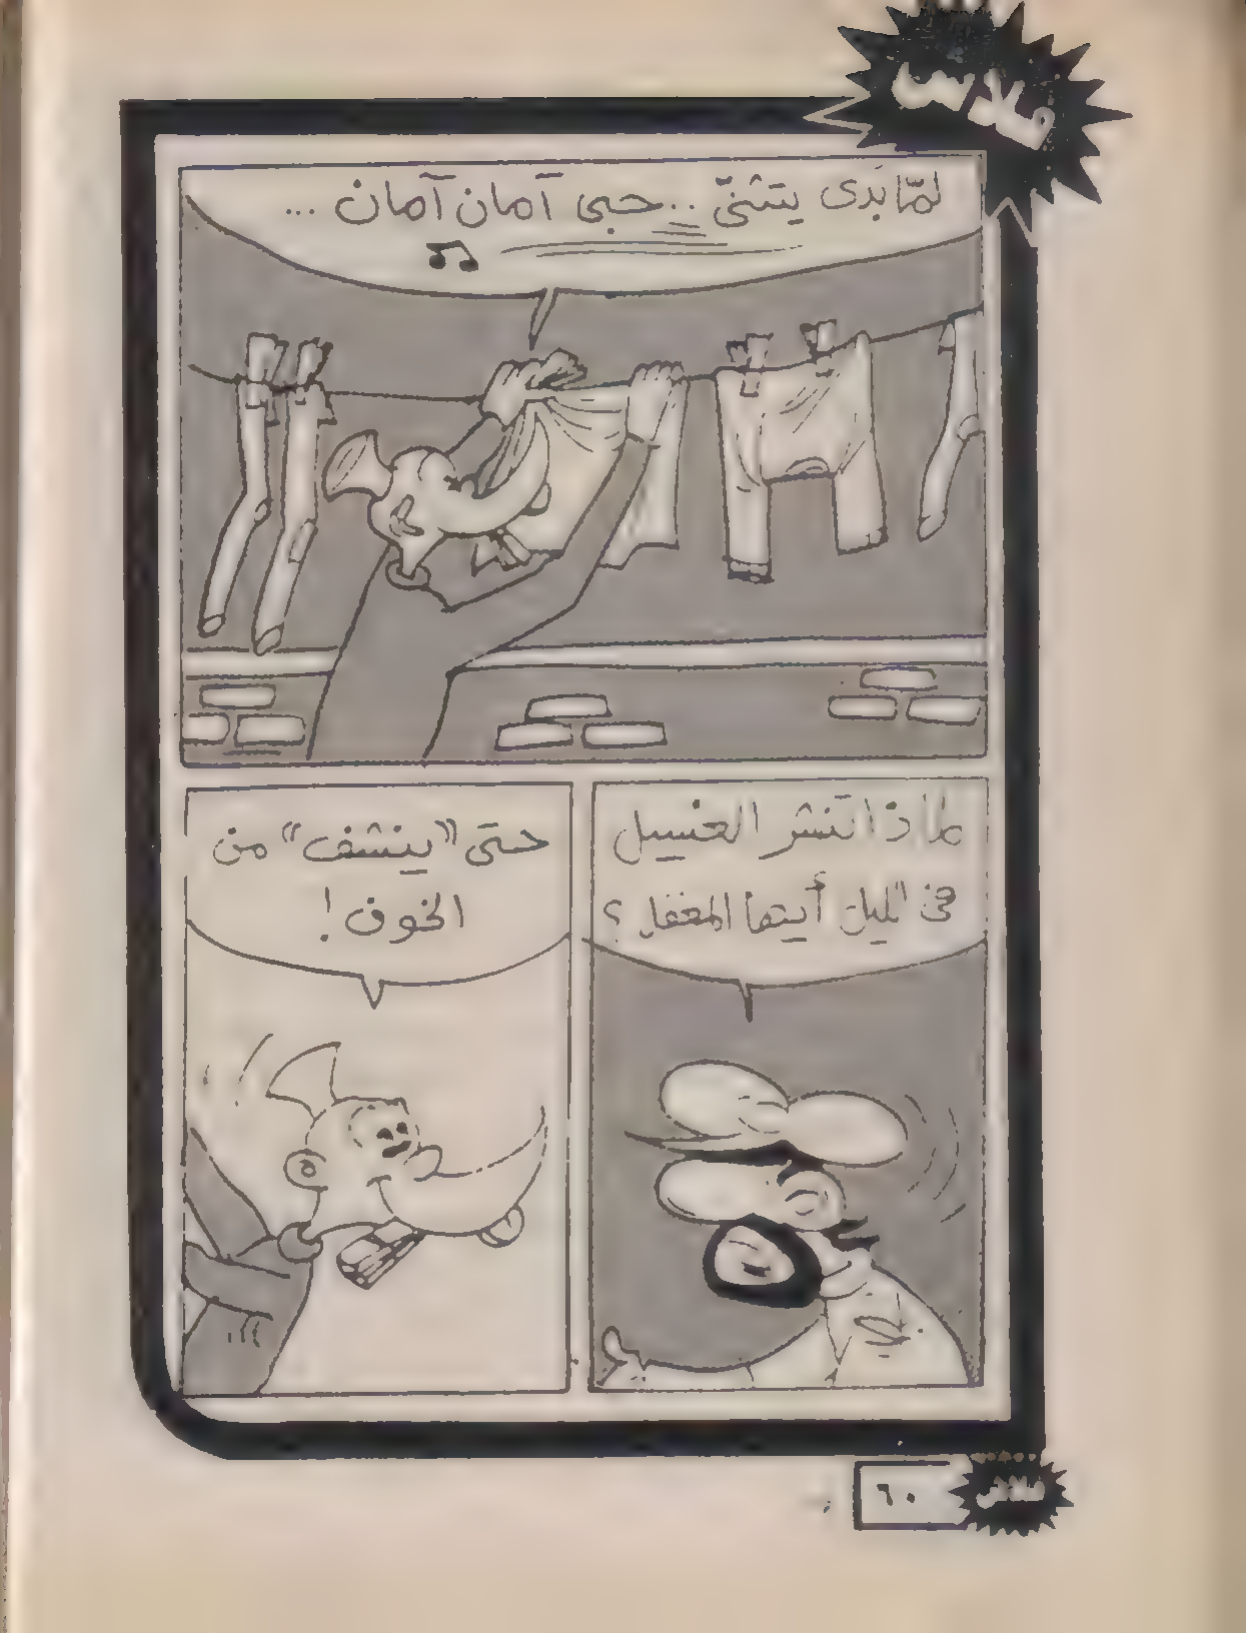 فلاش
لمّا بَدى يتثنّى .. حبى آمان آمان ...
لماذا تنشر الغسيل
فى الليل أيتها المغفل ؟
حتى "ينشف" من
الخوف !
٦٠
فلاش